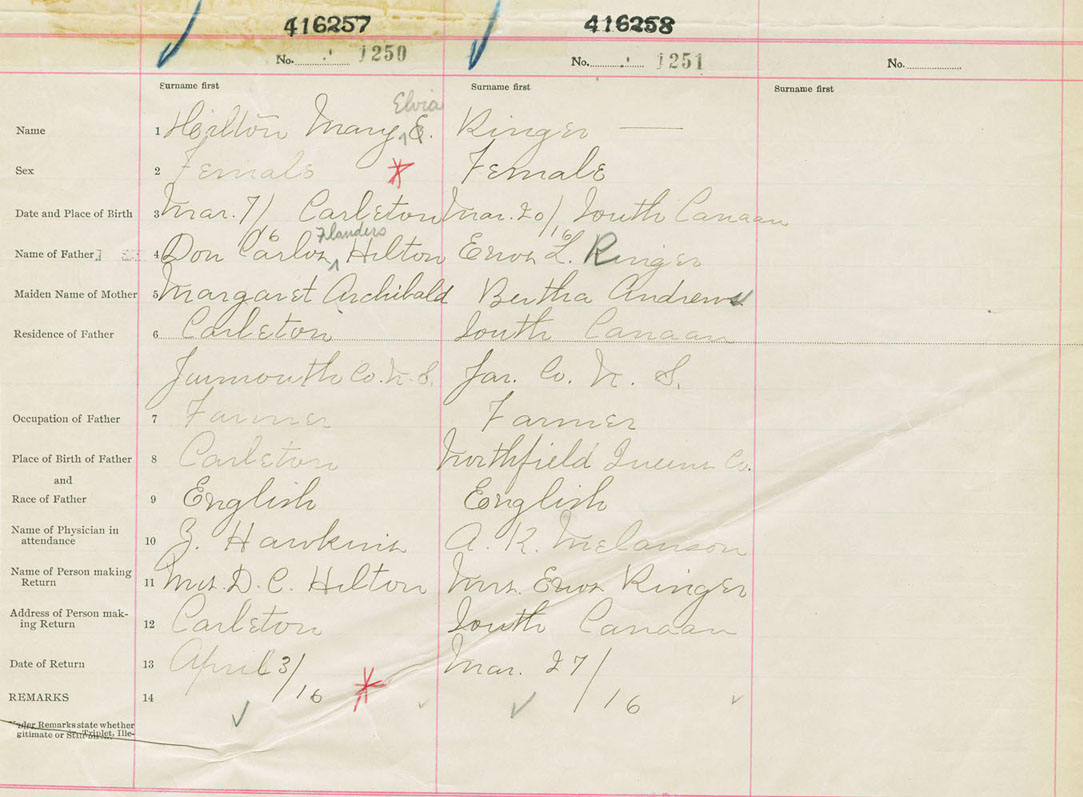 416257 416258
No. 1250 No. 1251 No.
Surname first Surname first Surname first
Elvia
Name 1 Hilton Mary E. Ringer —
Sex 2 Female * Female
Date and Place of Birth 3 Mar. 7/16 Carleton Mar. 20/16 South Canaan
Flanders
Name of Father 4 Don Carlos Hilton Enos L. Ringer
Maiden Name of Mother 5 Margaret Archibald Bertha Andrews
Residence of Father 6 Carleton South Canaan
Yarmouth Co. N. S. Yar. Co. N. S.
Occupation of Father 7 Farmer Farmer
Place of Birth of Father 8 Carleton Northfield Queens Co.
and
Race of Father 9 English English
Name of Physician in
attendance 10 Z. Hawkins A. R. Melanson
Name of Person making
Return 11 Mrs. D. C. Hilton Mrs. Enos Ringer
Address of Person mak-
ing Return 12 Carleton South Canaan
Date of Return 13 April 3/16 Mar. 27/16
REMARKS 14 *
Under Remarks state whether
Triplet, Ille-
gitimate or Still